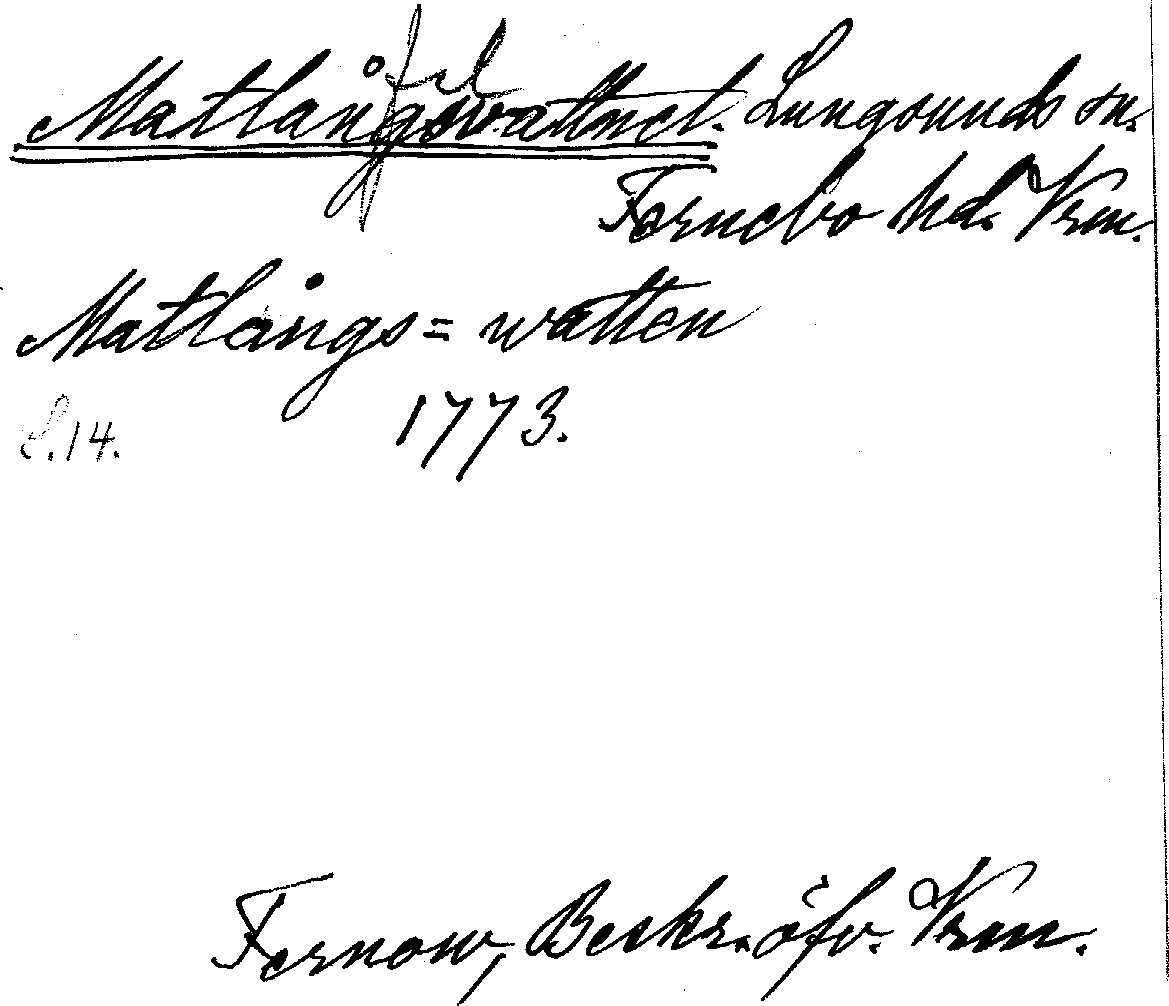 Matlångsvattnet. Lungsunds sn.
Fernebo hd. Vrm.
Matlångs= watten
S.14. 1773.
Fernow, Beskr. öfv. Vrm.